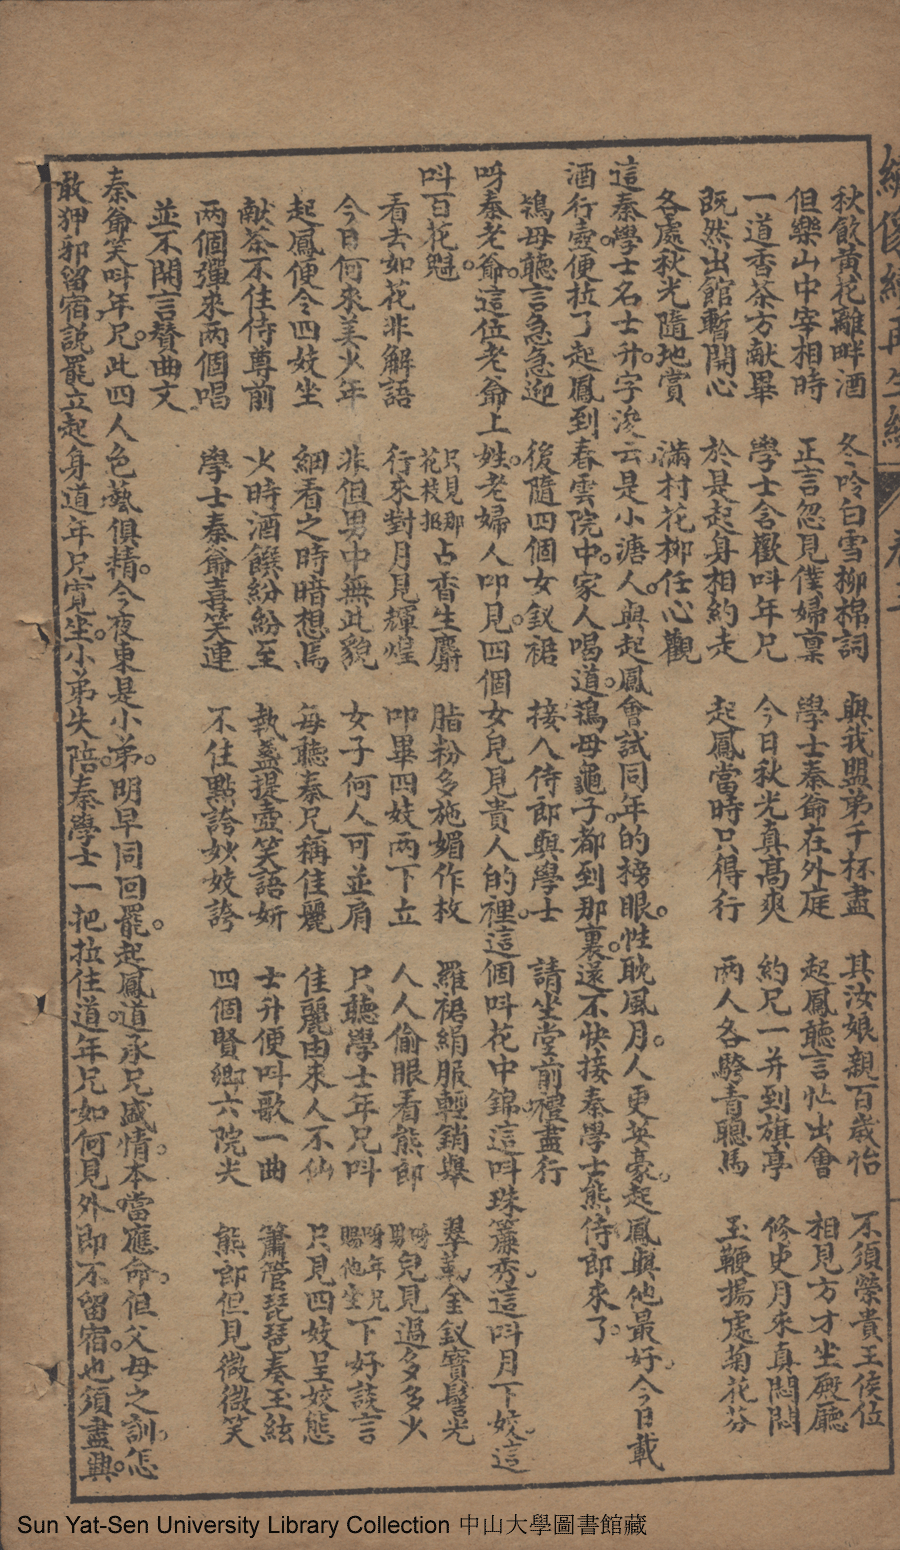 秋飲黃花籬畔酒　冬吟白雪柳棉詞　與我盟弟千杯盡　其汝娘親百歲怡　不須榮貴王侯位
但樂山中宰相時　正言忽見僕婦稟　學士秦爺在外庭　起鳳聽言忙出會　相見方才坐廠廳
一道香茶方献畢　學士含歡呌年兄　今日秋光真高爽　約兄一并到旗亭　修史月來真悶悶
既然出館暫開心　於是起身相約走　起鳳當時只得行　两人各騎青驄馬　玉鞭揚處菊花芬
各處秋光隨地賞　滿村花柳任心觀
這秦學士名士升。字浚云是小溏人。與起鳳會試同年的榜眼。性耽風月。人更英豪。起鳳與他最好。今日載
酒行壺。便拉了起鳳到春雲院中。家人喝道。鴇母龜子。都到那裏。還不快接秦學士熊侍郎來了。
鴇母聽言急急迎　後隨四個女釵裙　接入侍郎與學士　請坐堂前禮盡行
呀秦老爺。這位老爺上姓。老婦人叩見。四個女兒見貴人的裡。這個呌花中錦這呌珠簾秀。這呌月下姣。這
呌百花魁。　只見那花枝招占香生麝　脂粉多施媚作枚　羅裙絹服輕銷舉　翠羲金釵寶髻光
看去如花非解語　行來對月見輝煌　叩畢四妓两下立　人人偷眼看熊郎　兒見過多多少
今日何來美少年　非但男中無此貌　女子何人可並肩　只聽學士年兄呌　呀年兄賜他坐下好談言
起鳳便令四妓坐　細看之時暗想焉　每聽秦兄稱佳麗　佳麗由來人不仙　只見四妓呈姣態
献茶不住侍尊前　火時酒饌紛紛至　執盞提壺笑語妍　士升便呌歌一曲　簫管琵琶奏玉絃
两個彈來两個唱　學士秦爺喜笑連　不住點誇妙妓誇　四個賢鄉六院尖　熊郎但見微微笑
並不開言賛曲文
秦爺笑呌年兄。此四人色藝俱精。今夜東是小弟。明早同回罷。起鳳道承兄盛情。本當應命。但父母之訓。怎
敢狎邪留宿説罷立起身道年兄寬坐。小弟失陪。秦學士一把拉住道。年兄如何見外即不留宿。也須盡興。
Sun Yat-Sen University Library Collection 中山大學圖書館藏